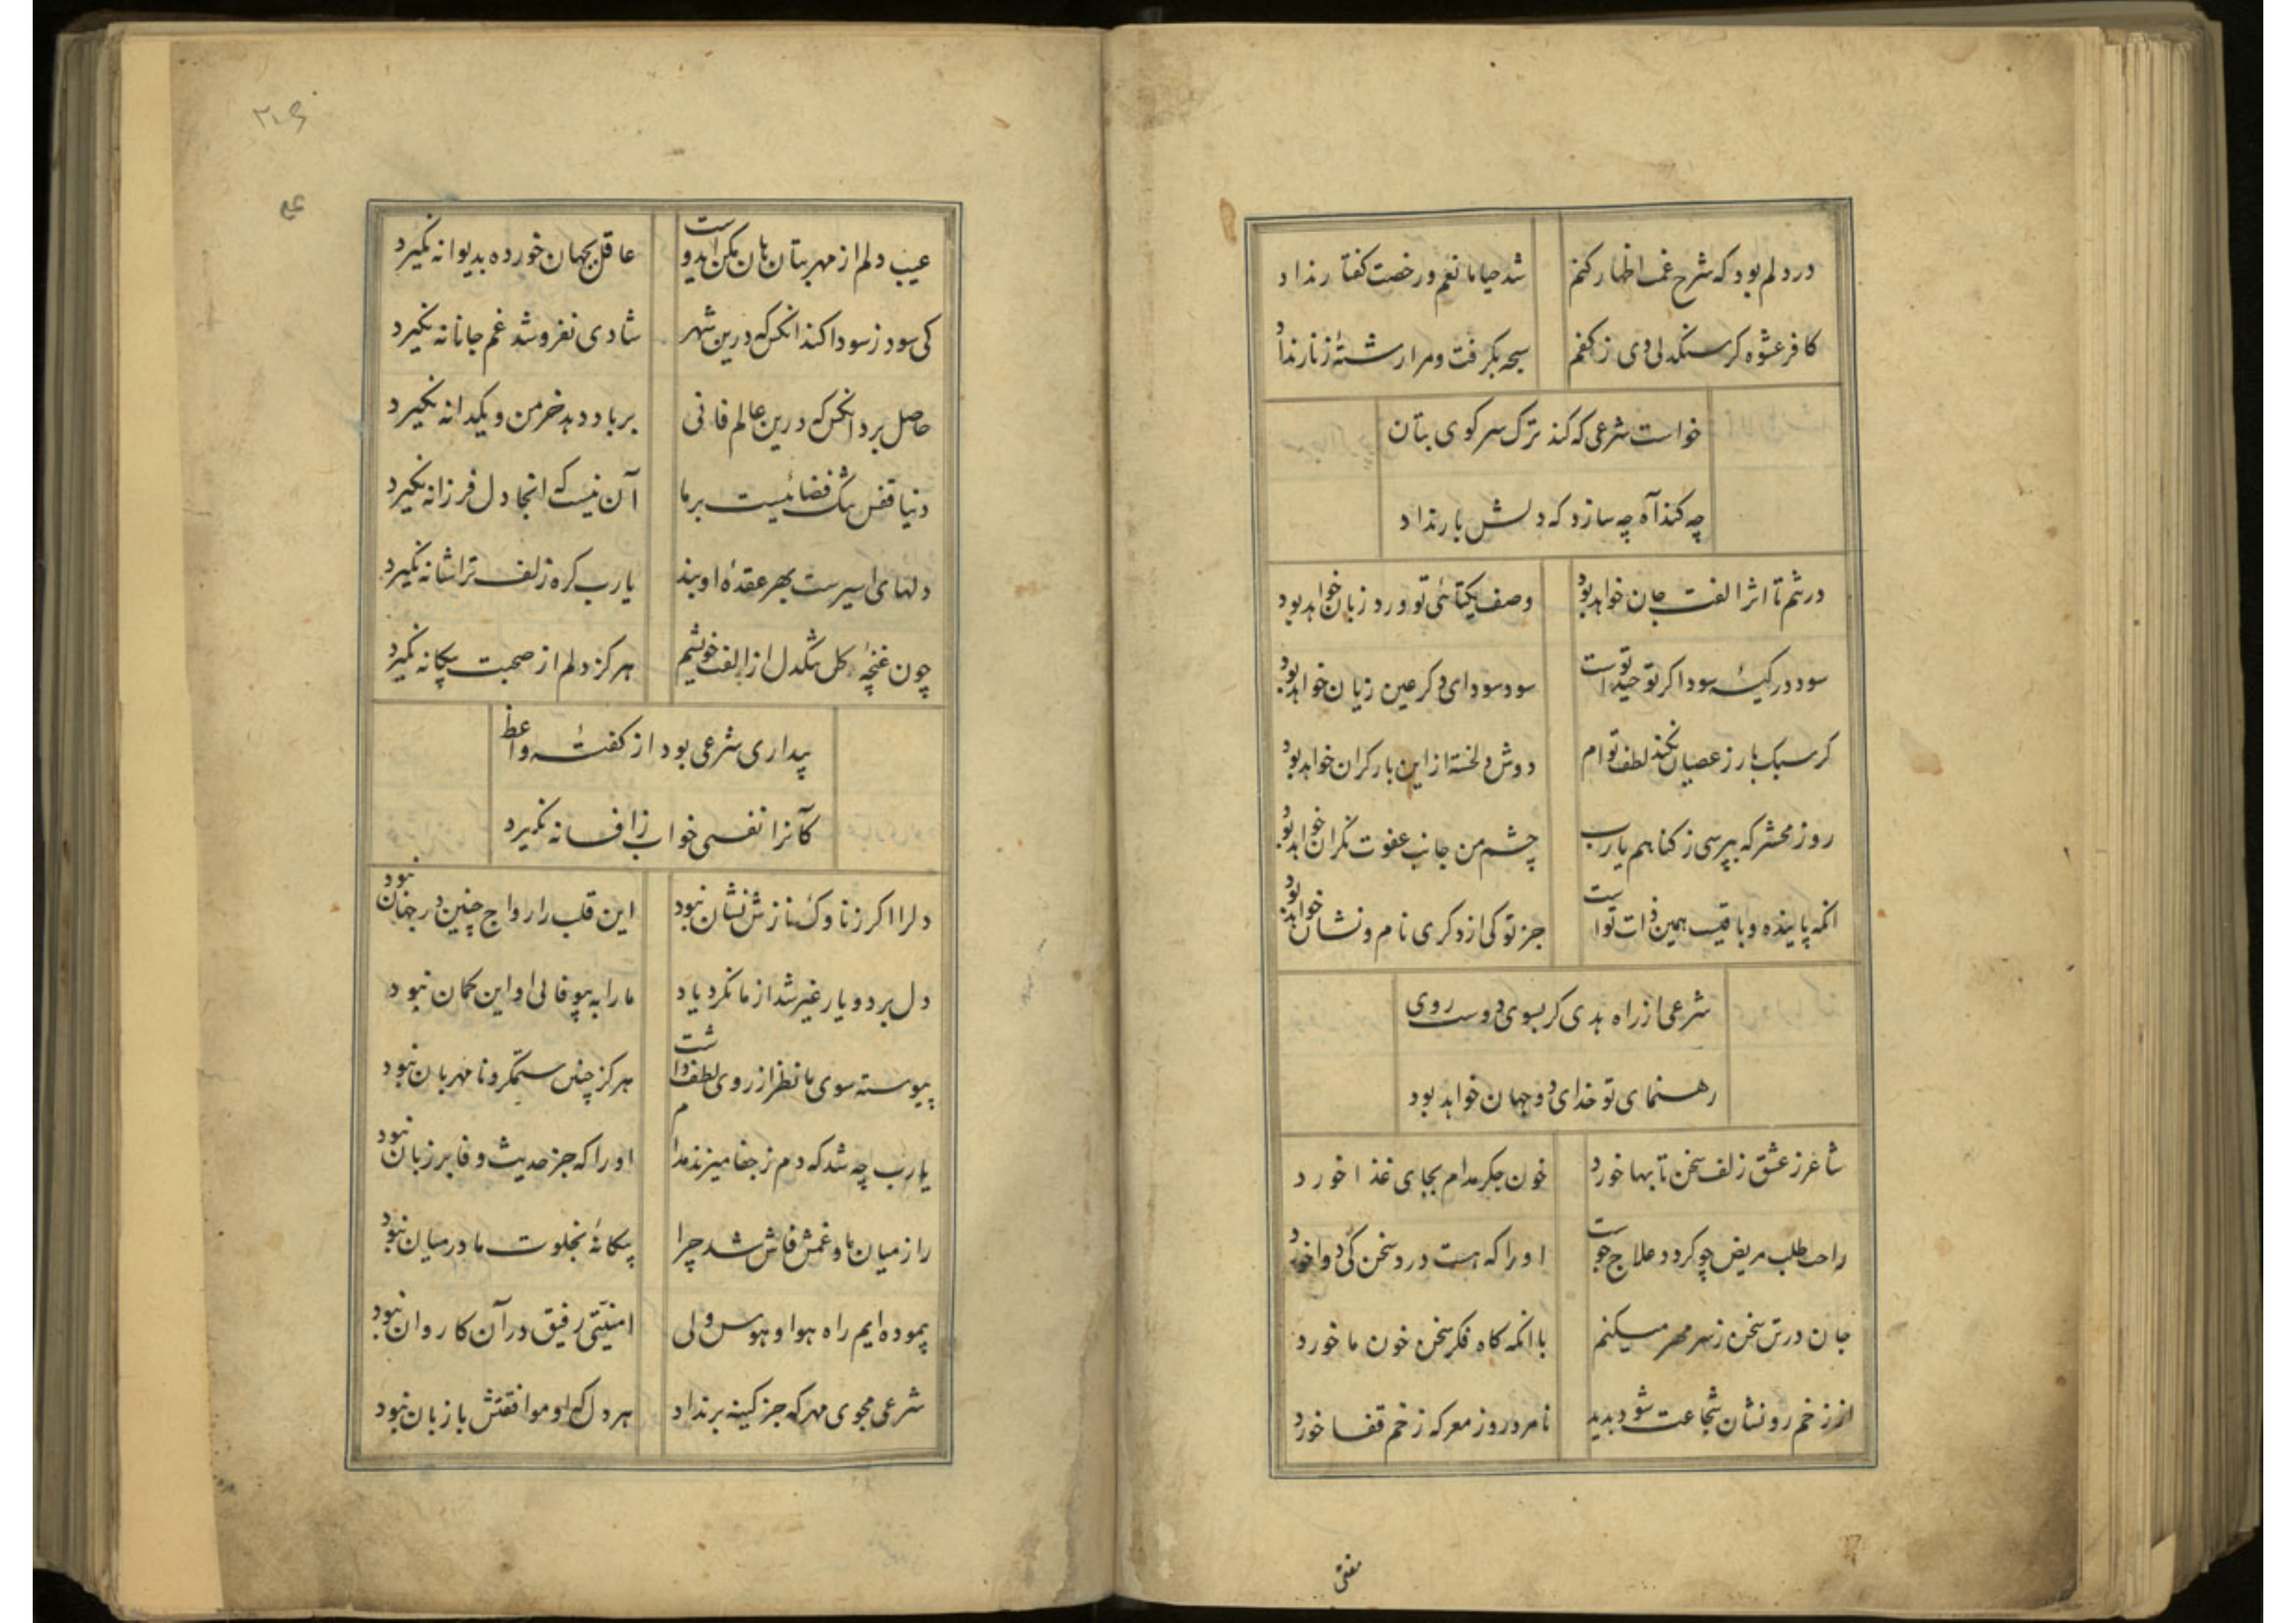 در دلم بود که شرح غمت اظهار کنم شد حیا مانعم و رخصت گفتار نداد
کافر عشوه کر سنکدلی دی ز کفم سبحه بکرفت و مرا رشتهٔ زنار نداد
خواست شرعی که کند ترک سر کوی بتان
چه کند آه چه سازد که دلش بار نداد
در تنم تا اثر الفت جان خواهد بود وصف یکتائی تو ورد زبان خواهد بود
سود در کیسهٔ سوداکر توحید تو است سود سودای دکر عین زیان خواهد بود
کر سبک بار ز عصیان نکند لطف توام دوش دلخسته از این بار کران خواهد بود
روز محشر که بپرسی ز کناهم یارب چشم من جانب عفوت نکران خواهد بود
انکه پاینده و باقیست همین ذات تو است جز تو کی از دکری نام و نشان خواهد بود
شرعی از راه بدی کر بسوی دوست روی
رهنمای تو خدای دو جهان خواهد بود
شاعر ز عشق زلف سخن تابها خورد خون جکر مدام بجای غذا خورد
راحت طلب مریض چو کردد علاج جوست او را که هست درد سخن کی دوا خورد
جان در تن سخن ز سر مهر میکنم با انکه کاه فکر سخن خون ما خورد
از زخم رو نشان شجاعت شود پدید نامرد روز معرکه زخم قفا خورد
مفتی
۲۰۶
عیب دلم از مهر بتان هان مکن ایدوست عاقل بجهان خورده بدیوانه نکیرد
کی سود ز سودا کند انکس که درین شهر شادی نفروشد غم جانانه نکیرد
حاصل برد انکس که درین عالم فانی بر باد دهد خرمن و یکدانه نکیرد
دنیا قفس تنک فضائیست بر ما آن نیست که انجا دل فرزانه نکیرد
دلهای اسیرست بهر عقدهٔ او بند یارب کره زلف ترا شانه نکیرد
چون غنچهٔ کل تنکدل از الفت خویشم هرکز دلم از صحبت بیکانه نکیرد
بیداری شرعی بود از کفتهٔ واعظ
کآنرا نفسی خواب ز افسانه نکیرد
دلرا اکر ز ناوک نازش نشان نبود این قلب را رواج چنین در جهان نبود
دل برد و یار غیر شد از ما نکرد یاد ما را به بیوفائی او این کمان نبود
پیوسته سوی ما نظر از روی لطف داشت هرکز چنین ستمکر و نامهربان نبود
یارب چه شد که دم ز جفا میزند مدام او را که جز حدیث وفا بر زبان نبود
راز میان ما و غمش فاش شد چرا بیکانهٔ بخلوت ما در میان نبود
پیموده ایم راه هوا و هوس ولی امنیتی رفیق در آن کاروان نبود
شرعی مجوی مهر که جز کینه بر نداد هر دل که او موافقتش با زبان نبود